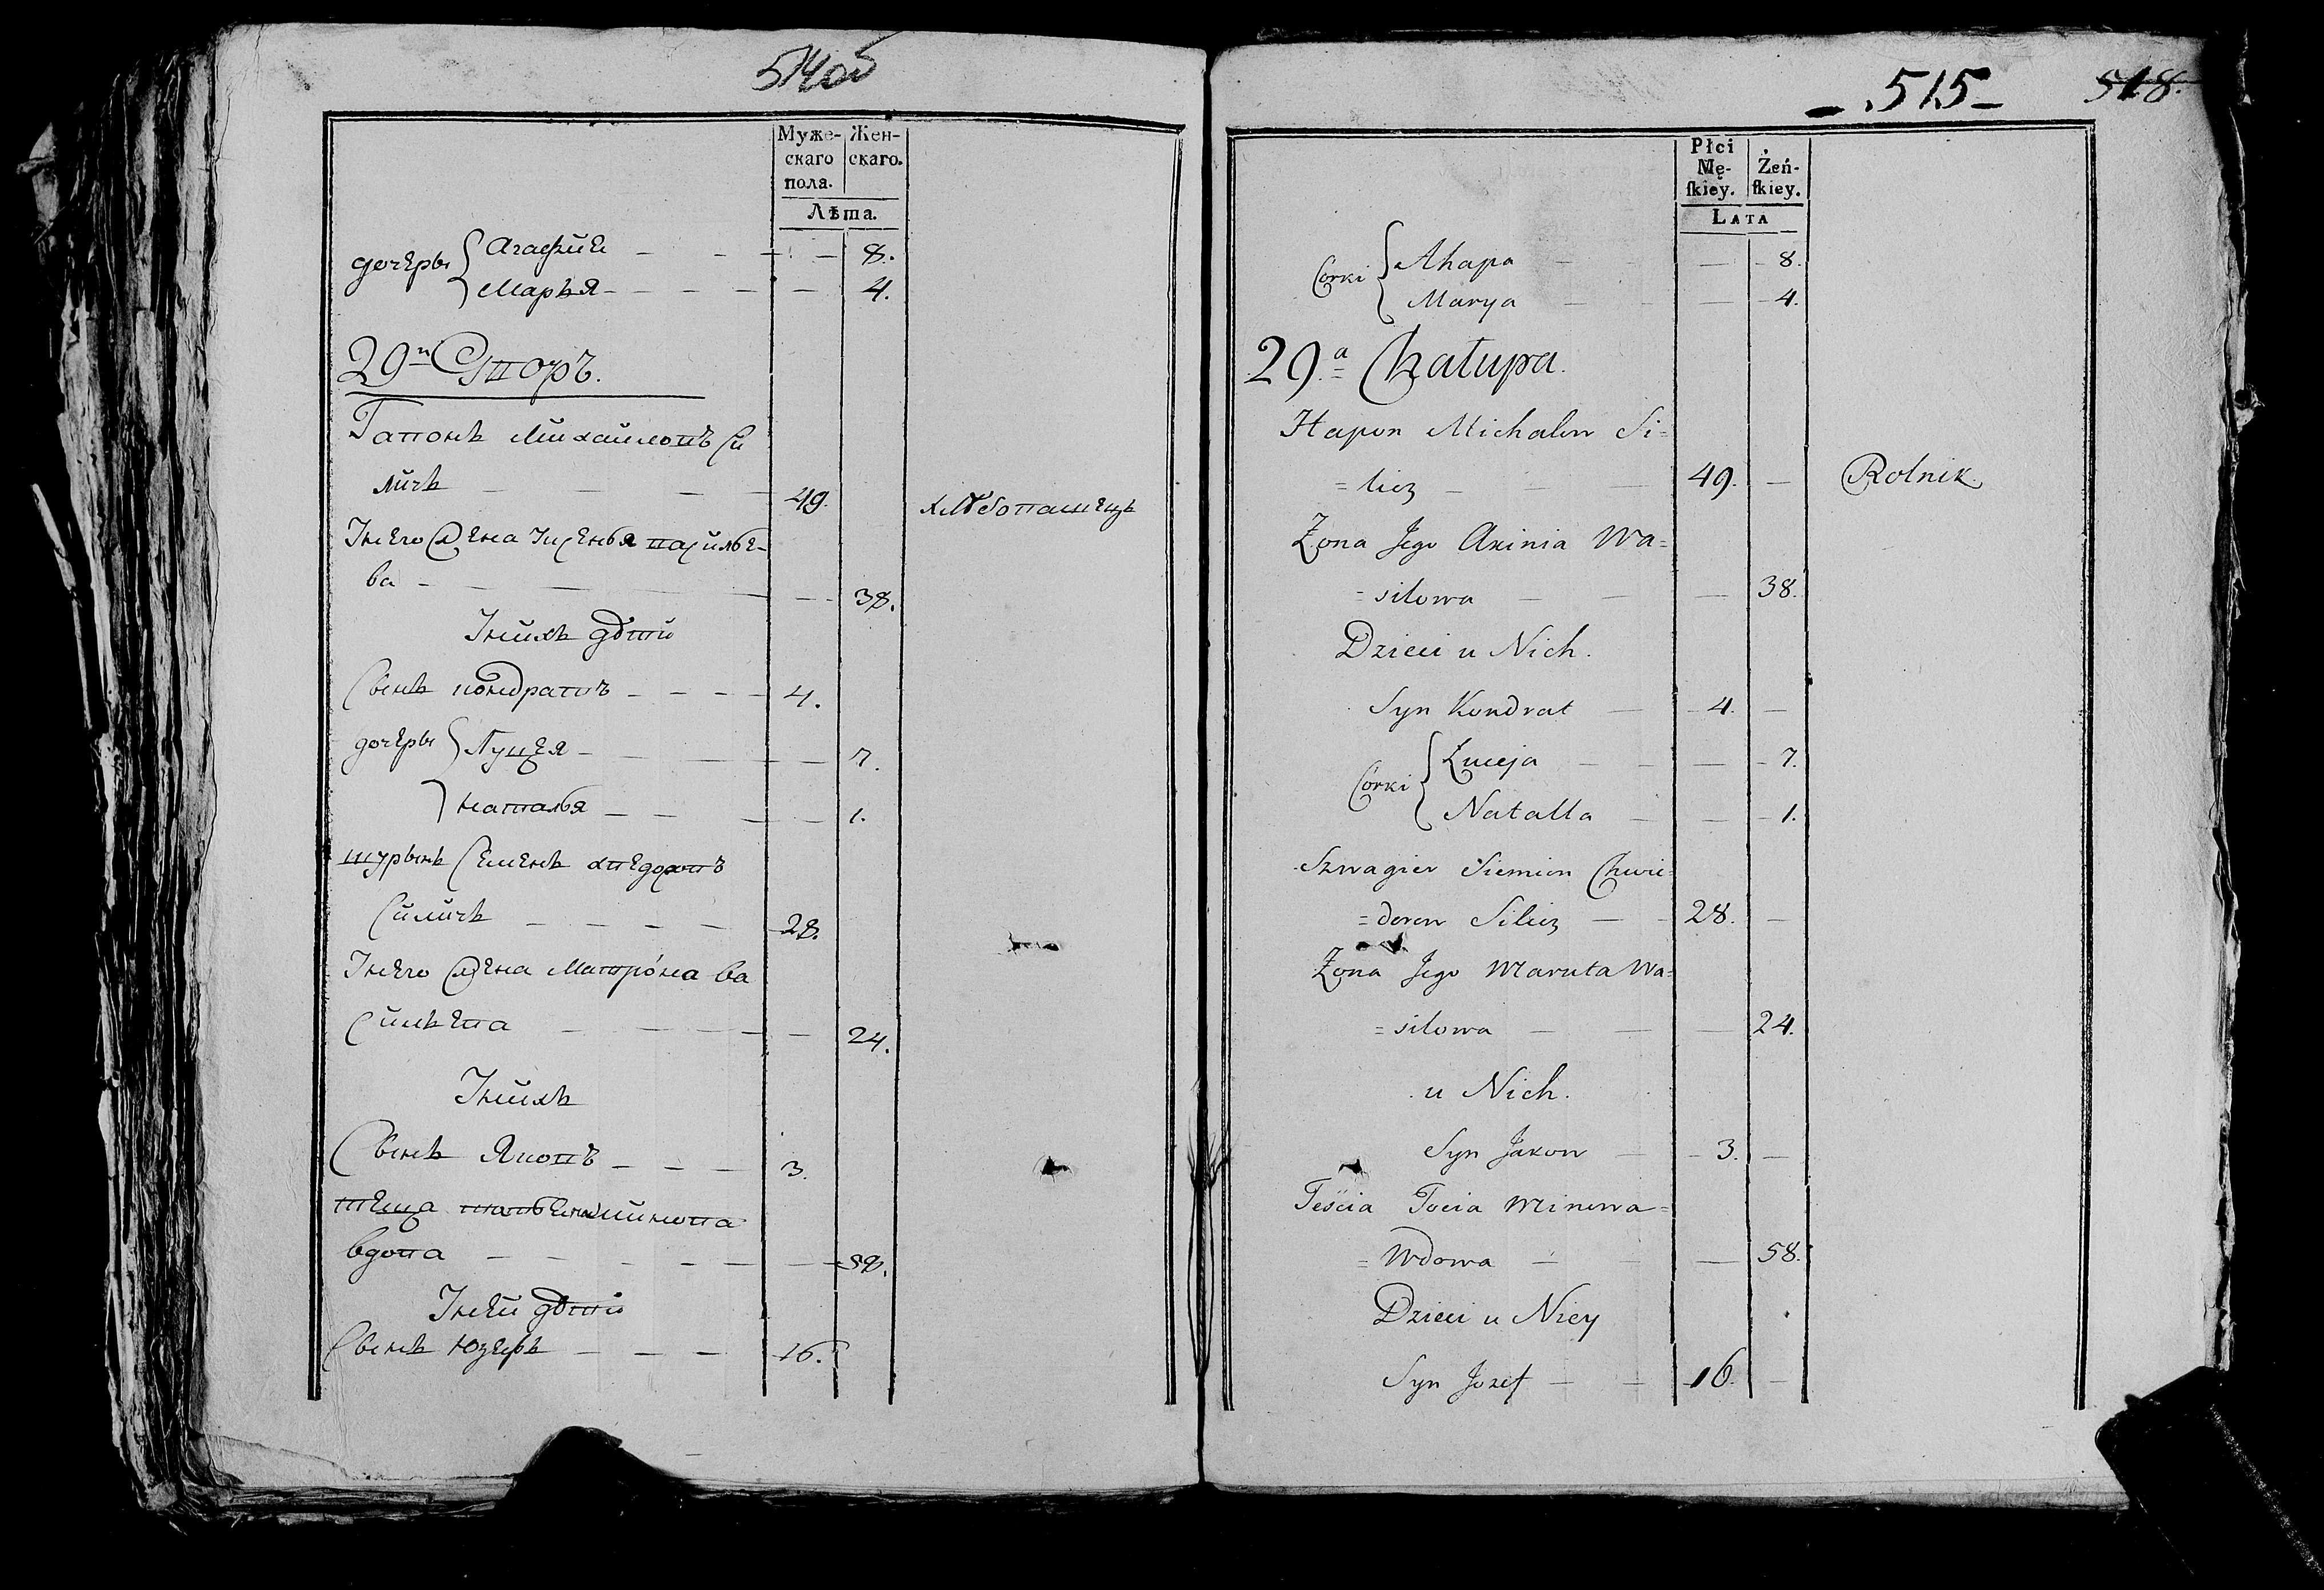 514об
Муже-
скаго
пола.
Жен-
скаго.
Лѣта.
дочеры { Агафия — — — — 8.
Марья — — — — — 4.
29й Дворъ.
Гапонъ Михайловъ Си
личъ — — — — 49. хлѣбопашецъ
У него жена Ксенья Василье-
ва — — — — — 38.
У нихъ дѣти
Сынъ Кондратъ — — — — 4.
дочеры { Луцея — — — — 7.
Наталья — — — — 1.
шурынъ Семенъ Хведоровъ
Силичъ — — — — 28.
У него жена Матрона Ва
сильева — — — — — 24.
У нихъ
Сынъ Яковъ — — — 3.
теща
вдова — — — — — 58.
У ней дѣти
Сынъ Юзефъ — — — 16.
515 518.
Płci
Mę-
skiey.
Żeń-
skiey.
LATA
Córki { Ahapa — — — 8.
Marya — — — 4.
29.a Chałupa.
Hapon Michałow Si=
=licz — — — 49. — Rolnik.
Żona Jego Axinia Wa=
=siłowa — — — 38.
Dzieci u Nich.
Syn Kondrat — 4. —
Córki { Łuceja — — — 7.
Natalla — — 1.
Szwagier Siemion Chwie=
=dorow Silicz — 28. —
Żona Jego Maruta Wa=
=siłowa — — — 24.
u Nich.
Syn Jakow — 3. —
Teścia Tocia Minowa=
=Wdowa — — — 58.
Dzieci u Niey
Syn Jozef — — 16. —